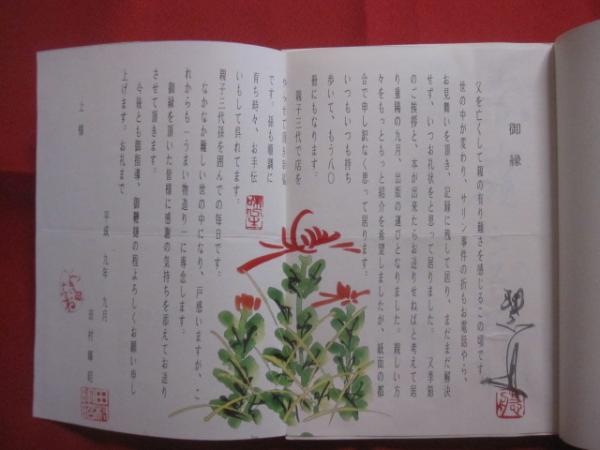 御縁
父を亡くして親の有り難さを感じるこの頃です。
世の中が変わり、サリン事件の折もお電話やら、
お見舞いを頂き、記録に残して居り、まだまだ解決
せず、いつお礼状をと思って居りました。又季節
のご挨拶と、本が出来たらお送りせねばと考えて居
り重陽の九月、出版の運びとなりました。親しい方
々をもっともっと紹介を希望しましたが、紙面の都
合で申し訳なく思って居ります。
いつもいつも持ち
歩いて、もう八〇
冊にもなります。
親子三代で店を
です。孫も順調に
育ち時々、お手伝
いもして呉れてます。
親子三代孫を囲んでの毎日です。
なかなか難しい世の中になり、戸惑いますが、こ
れからも―うまい物造り―に専念します。
御縁を頂いた皆様に感謝の気持ちを添えてお送り
させて頂きます。
今後とも御指導、御鞭撻の程よろしくお願い申し
上げます。お礼まで
平成 九年 九月
田村暉昭
上様